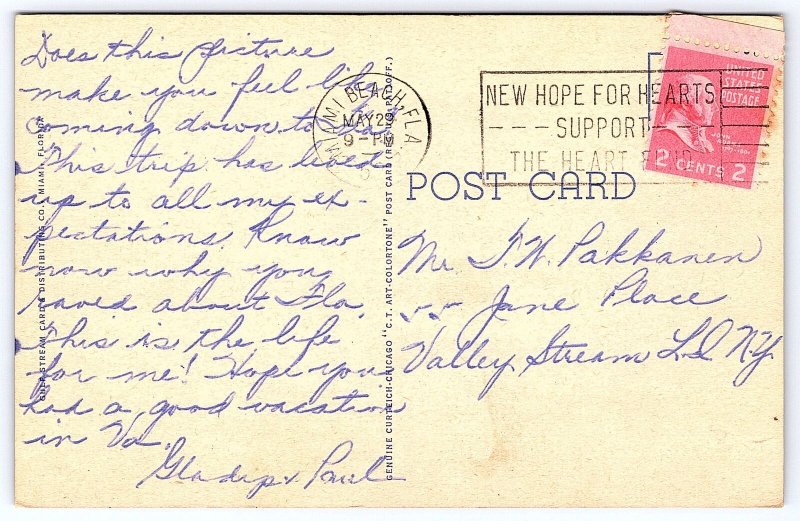 Does this picture
make you feel like
coming down to Fla.
This trip has lived
up to all my ex-
pectations. Know
now why you
raved about Fla.
This is the life
for me! Hope you
had a good vacation
in Va.
Gladys & Paul
GULF STREAM CARD & DISTRIBUTING CO., MIAMI, FLORIDA
GENUINE CURTEICH-CHICAGO "C.T. ART-COLORTONE" POST CARD (REG. U.S. PAT. OFF.)
MIAMI BEACH, FLA.
MAY 29
9 - PM
NEW HOPE FOR HEARTS
--- SUPPORT
THE HEART FUND
UNITED
STATES
POSTAGE
JOHN
2 CENTS 2
POST CARD
Mr. T.W. Pakkanen
55 Jane Place
Valley Stream L.I. N.Y.